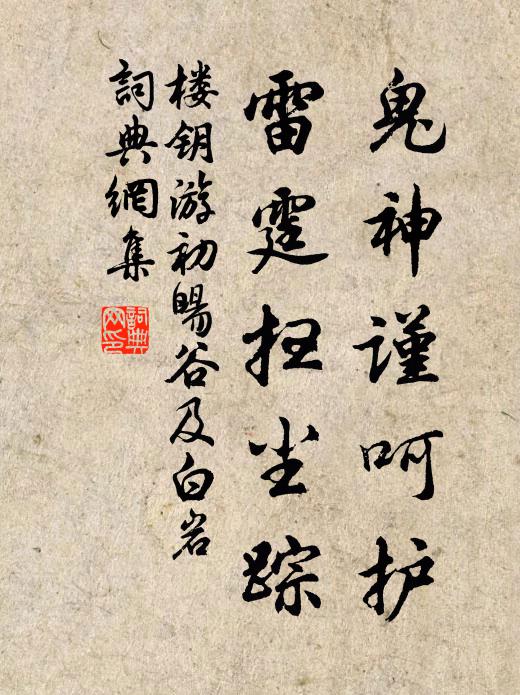 鬼神谨呵护
雷霆扫尘踪
楼钥游初旸谷及白岩
詞典網集
詞典
網印